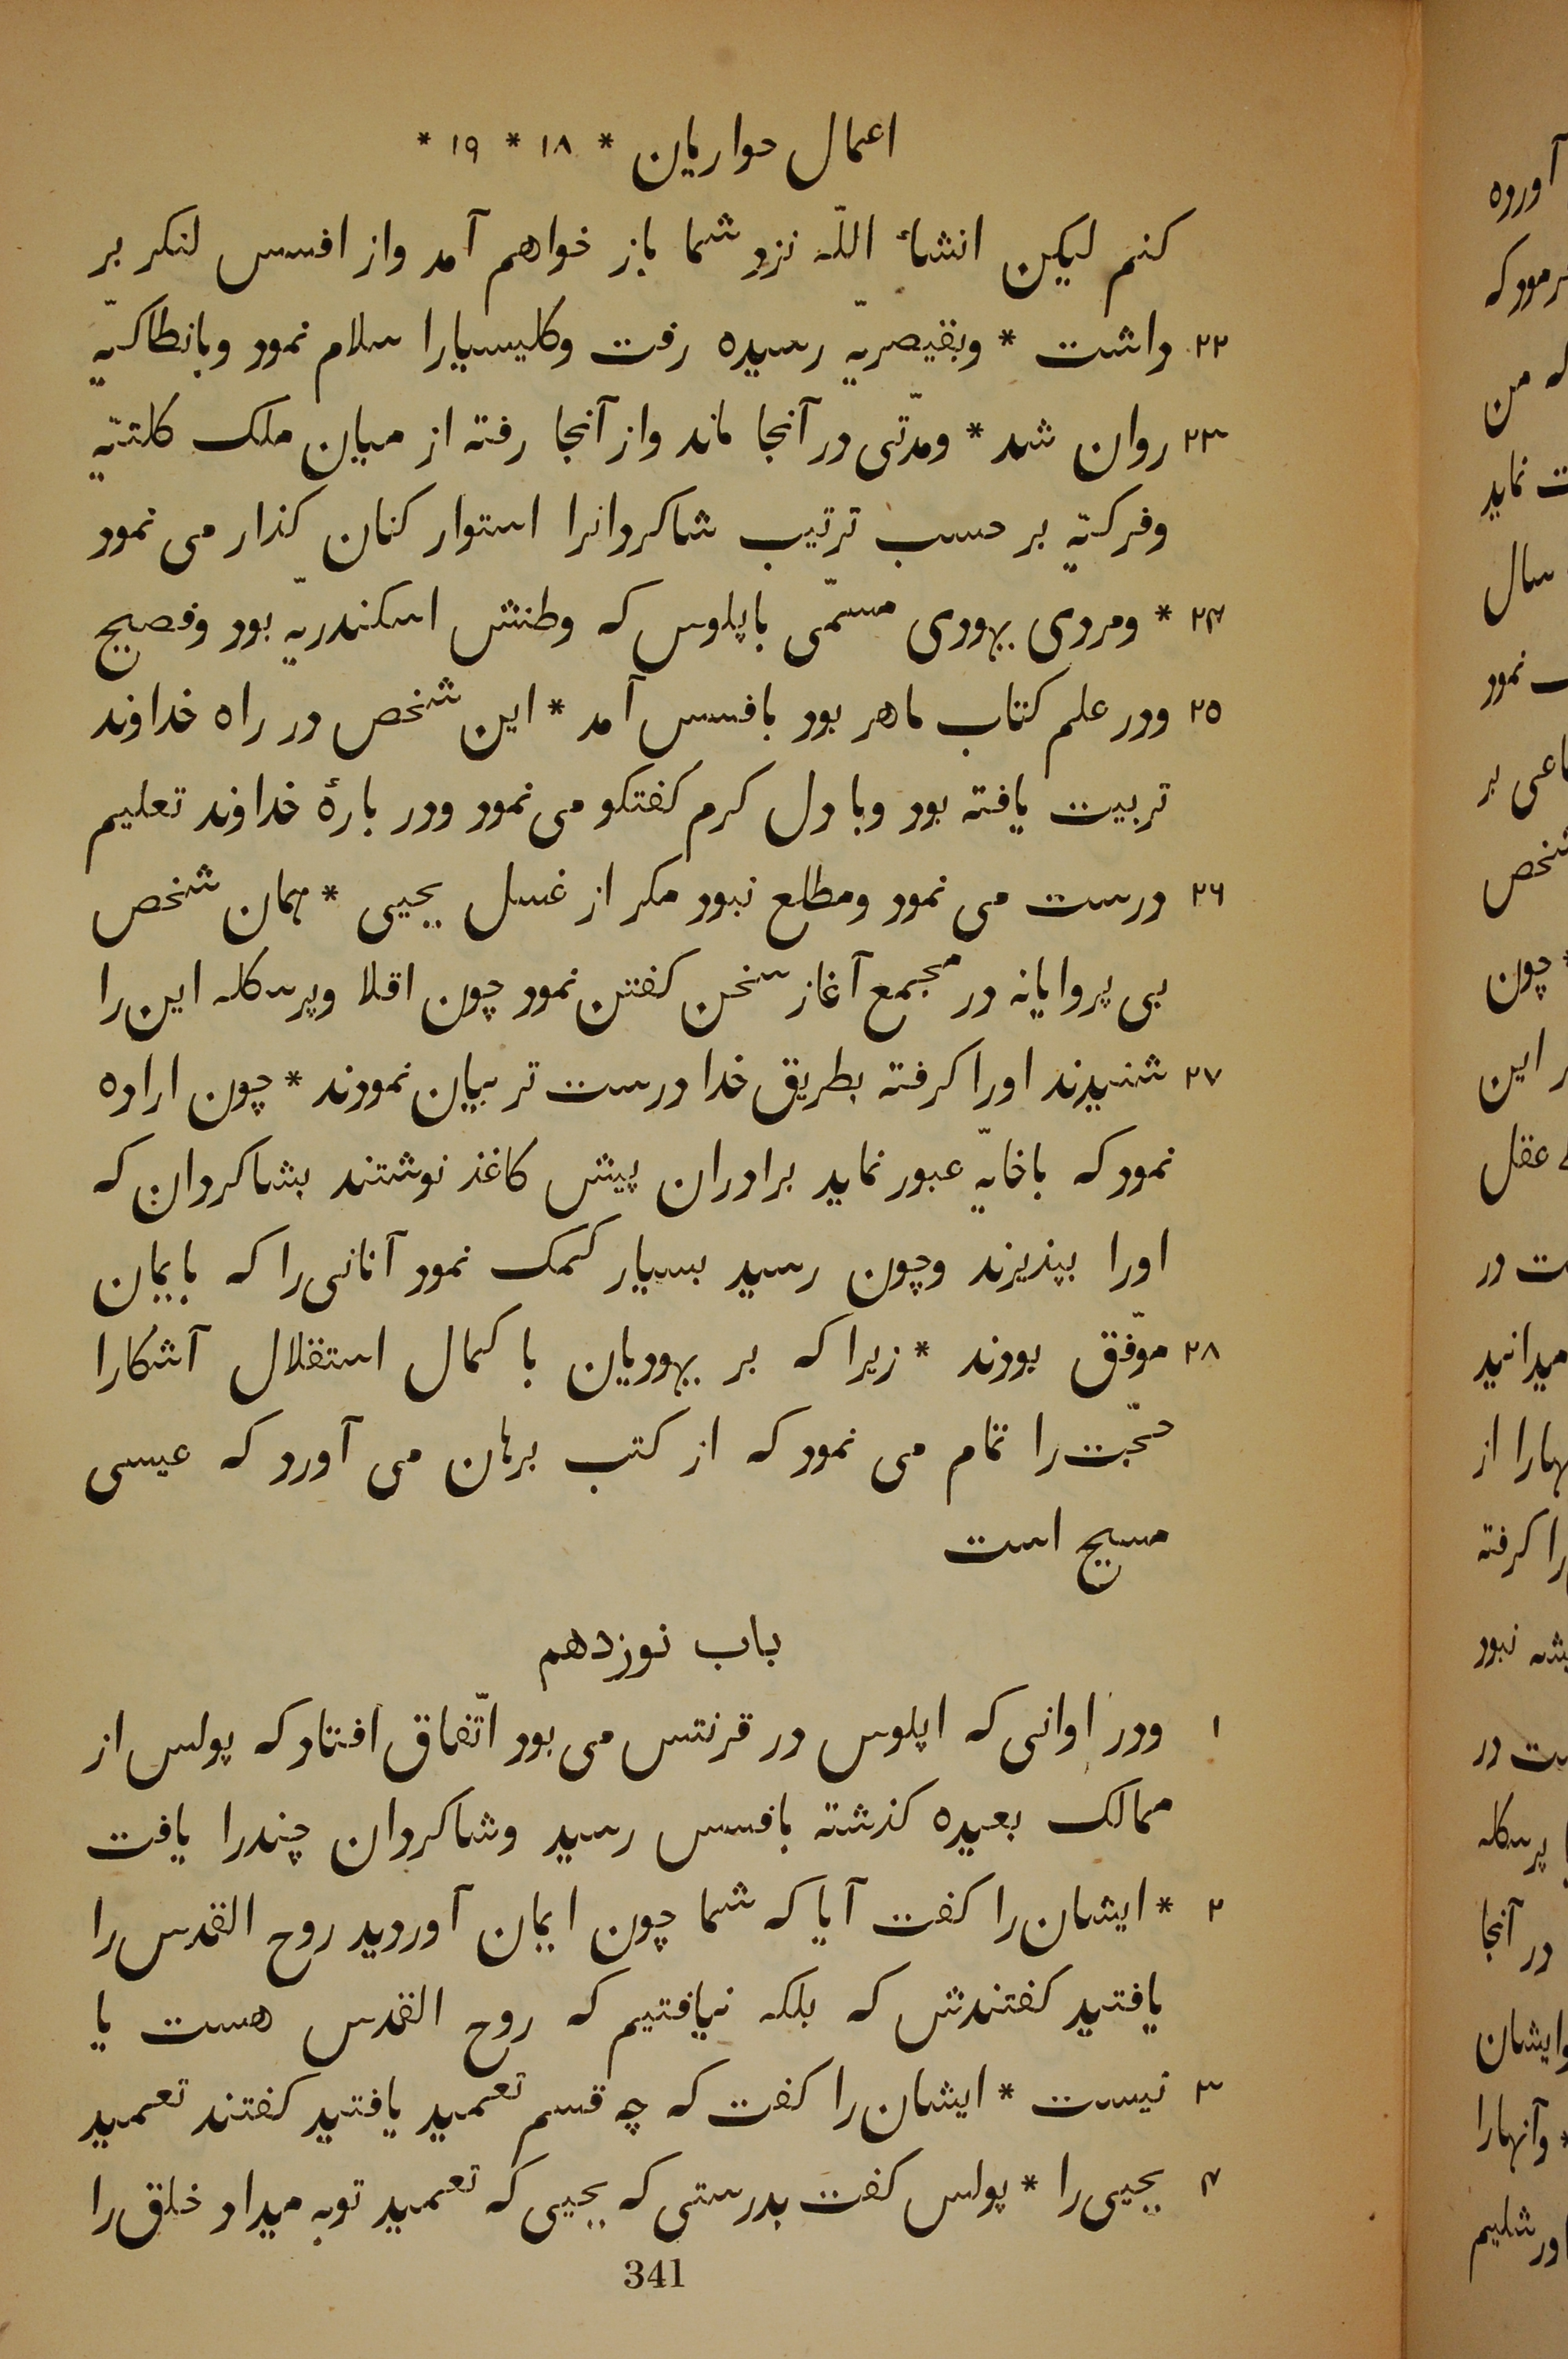 اعمال حواریان * ۱۸ * ۱۹ *
کنم لیکن انشاء اللّه نزد شما باز خواهم آمد واز افسس لنکر بر
۲۲ داشت * وبقیصریّه رسیده رفت وکلیسیارا سلام نمود وبانطاکیّه
۲۳ روان شد * ومدّتی در آنجا ماند واز آنجا رفته از میان ملک کلتیّه
وفرکیّه بر حسب ترتیب شاکردانرا استوار کنان کذار می نمود
۲۴ * ومردی یهودی مسمّی باپلوس که وطنش اسکندریّه بود وفصیح
۲۵ ودر علم کتاب ماهر بود بافسس آمد * این شخص در راه خداوند
تربیت یافته بود وبا دل کرم کفتکو می نمود ودر بارهٔ خداوند تعلیم
۲۶ درست می نمود ومطلع نبود مکر از غسل یحیی * همان شخص
بی پروایانه در مجمع آغاز سخن کفتن نمود چون اقلا وپرسکله این را
۲۷ شنیدند اورا کرفته بطریق خدا درست تر بیان نمودند * چون اراده
نمود که باخائیّه عبور نماید برادران پیش کاغذ نوشتند بشاکردان که
اورا بپذیرند وچون رسید بسیار کمک نمود آنانی را که بایمان
۲۸ موّفق بودند * زیرا که بر یهودیان با کمال استقلال آشکارا
حجّت را تمام می نمود که از کتب برهان می آورد که عیسی
مسیح است
باب نوزدهم
۱ ودر اوانی که اپلوس در قرنتس می بود اتّفاق افتاد که پولس از
ممالک بعیده کذشته بافسس رسید وشاکردان چندرا یافت
۲ * ایشان را کفت آیا که شما چون ایمان آوردید روح القدس را
یافتید کفتندش که بلکه نیافتیم که روح القدس هست یا
۳ نیست * ایشان را کفت که چه قسم تعمید یافتید کفتند تعمید
۴ یحیی را * پولس کفت بدرستی که یحیی که تعمید توبه میداد خلق را
341